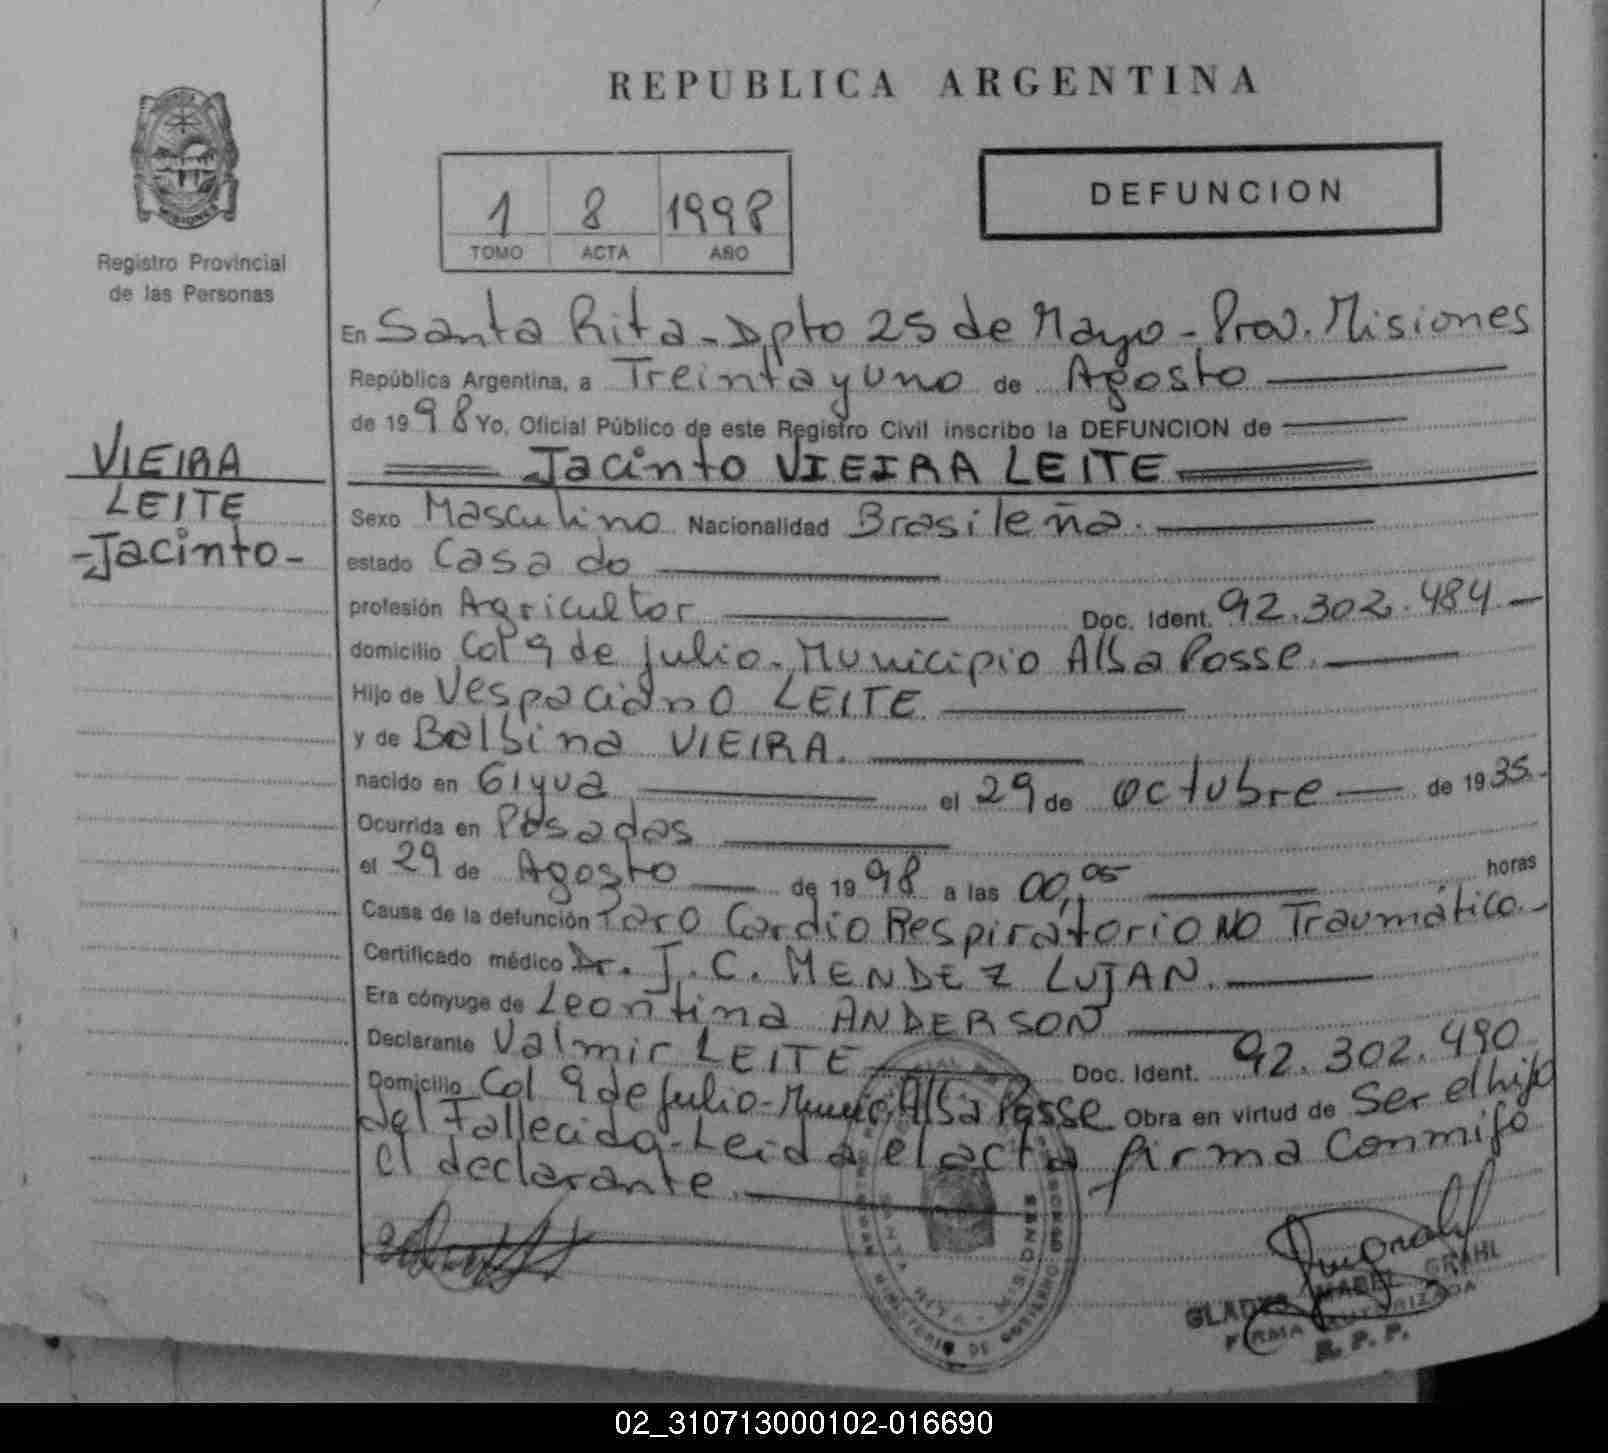 REPUBLICA ARGENTINA
MISIONES
Registro Provincial
de las Personas
1 8 1998
TOMO ACTA AÑO
DEFUNCION
En Santa Rita - Dpto 25 de Mayo - Prov. Misiones
República Argentina, a Treinta y uno de Agosto
de 1998 Yo, Oficial Público de este Registro Civil inscribo la DEFUNCION de
Jacinto VIEIRA LEITE
VIEIRA
LEITE
- Jacinto -
Sexo Masculino Nacionalidad Brasileña.
estado Casado
profesión Agricultor Doc. Ident. 92.302.484 -
domicilio Col 9 de Julio - Municipio Alba Posse.
Hijo de Vespaciano LEITE
y de Balbina VIEIRA.
nacido en Giyua el 29 de octubre de 1935.-
Ocurrida en Posadas
el 29 de Agosto de 1998 a las 00,05 horas
Causa de la defunción Paro Cardio Respiratorio NO Traumático.-
Certificado médico Dr. J. C. MENDEZ LUJAN.
Era cónyuge de Leontina ANDERSON
Declarante Valmir LEITE Doc. Ident. 92.302.490
Domicilio Col 9 de Julio - Alba Posse Obra en virtud de Ser el hijo
del Fallecido - Leida el acta firma Conmigo
el declarante.
MINISTERIO DE GOBIERNO
GLADYS MABEL GRAHL
FIRMA AUTORIZADA
R. P. P.
02_310713000102-016690